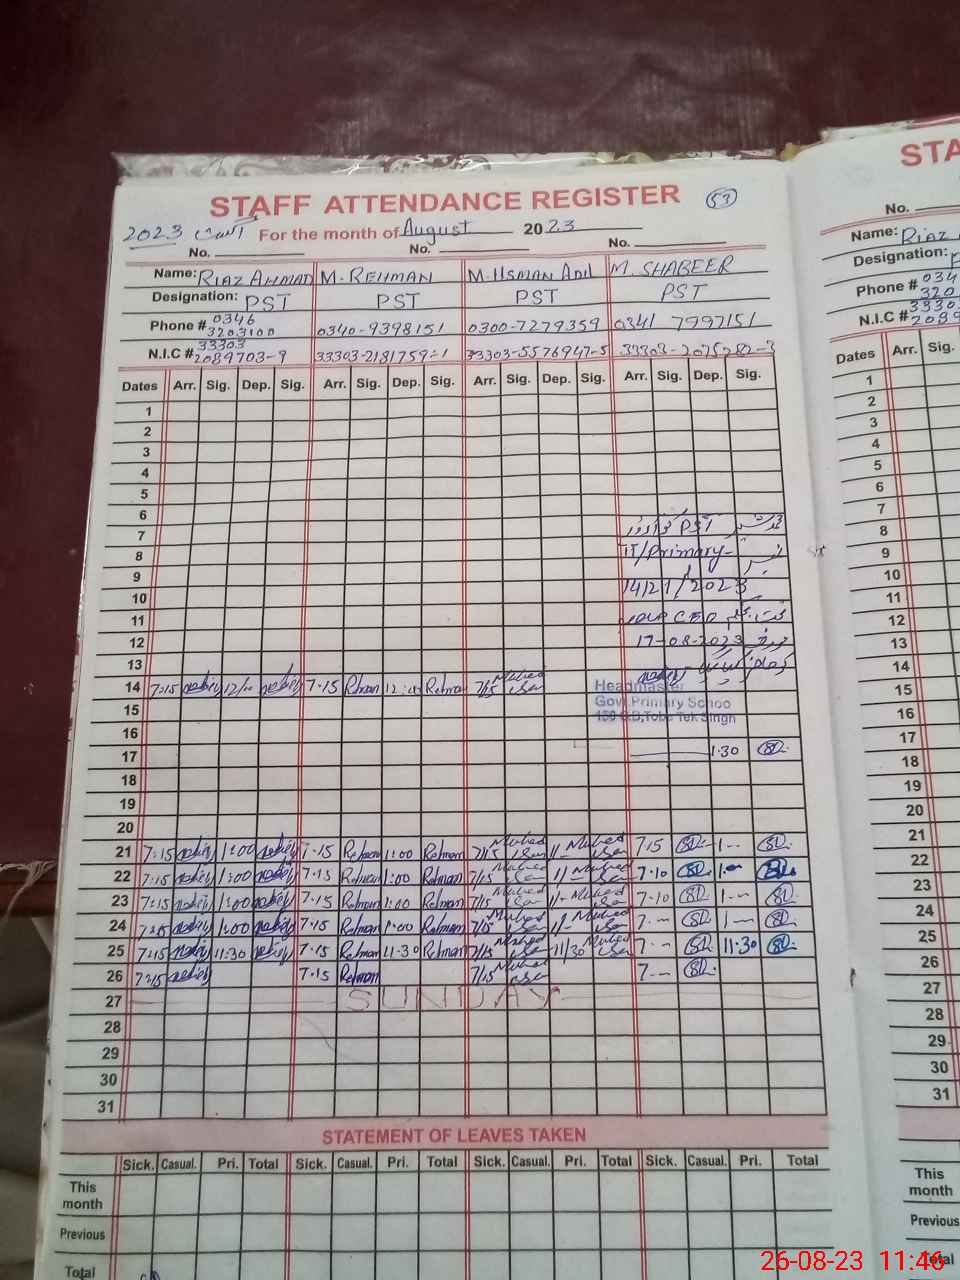 STAFF ATTENDANCE REGISTER 53
2023 اگست For the month of August 2023
No. No. No.
Name: RIAZ AHMAD M. REHMAN M. USMAN ADIL M. SHABEER
Designation: PST PST PST PST
Phone # 0346 3203100 0340-9398151 0300-7279359 0341 7997151
N.I.C # 33303 2089703-9 33303-2181759-1 33303-5576947-5 33303-2075282-3
Dates Arr. Sig. Dep. Sig. Arr. Sig. Dep. Sig. Arr. Sig. Dep. Sig. Arr. Sig. Dep. Sig.
1
2
3
4
5
6
7 PST
8 /Primary-
9
10 1421/2023
11 CEO
12 17-08-2023
13
14 7:15 12/00 7.15 Rehman 12:00 Rehman 7/15
Headmaster
15 Govt.Primary Schoo
16 159 G.B,Toba Tek Singh
17 1.30
18
19
20
21 7:15 1:00 7.15 Rehman 1:00 Rehman 7/15 1/- 7.15 1--
22 7:15 1:00 7.15 Rehman 1:00 Rehman 7/15 1/- 7.10 1--
23 7:15 1:00 7.15 Rehman 1:00 Rehman 7/15 1/- 7.10 1--
24 7:15 1:00 7.15 Rehman 1:00 Rehman 7/15 1/- 7.-- 1--
25 7:15 11:30 7.15 Rehman 11:30 Rehman 7/15 11/30 7.-- 11.30
26 7:15 7.15 Rehman 7/15 7.--
27 SUNDAY
28
29
30
31
STATEMENT OF LEAVES TAKEN
Sick. Casual. Pri. Total Sick. Casual. Pri. Total Sick. Casual. Pri. Total Sick. Casual. Pri. Total
This month
Previous
Total
STA
No.
Name: RIAZ
Designation:
Phone # 034 320
N.I.C # 3330 2089
Dates Arr. Sig.
1
2
3
4
5
6
7
8
9
10
11
12
13
14
15
16
17
18
19
20
21
22
23
24
25
26
27
28
29
30
31
This month
Previous
Total
26-08-23 11:46